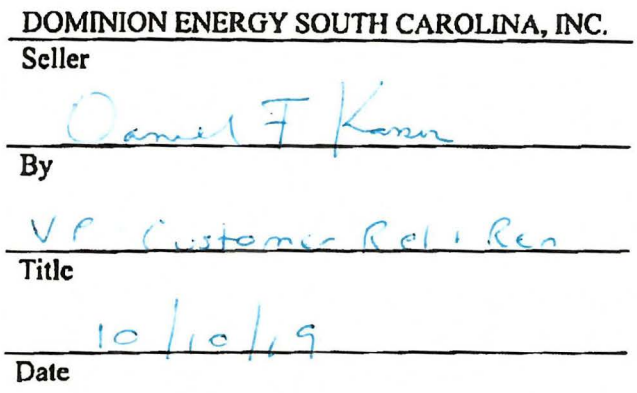 DOMINION ENERGY SOUTH CAROLINA, INC.
Seller
Daniel F Kassis
By
VP Customer Rel & Ren
Title
10/10/19
Date